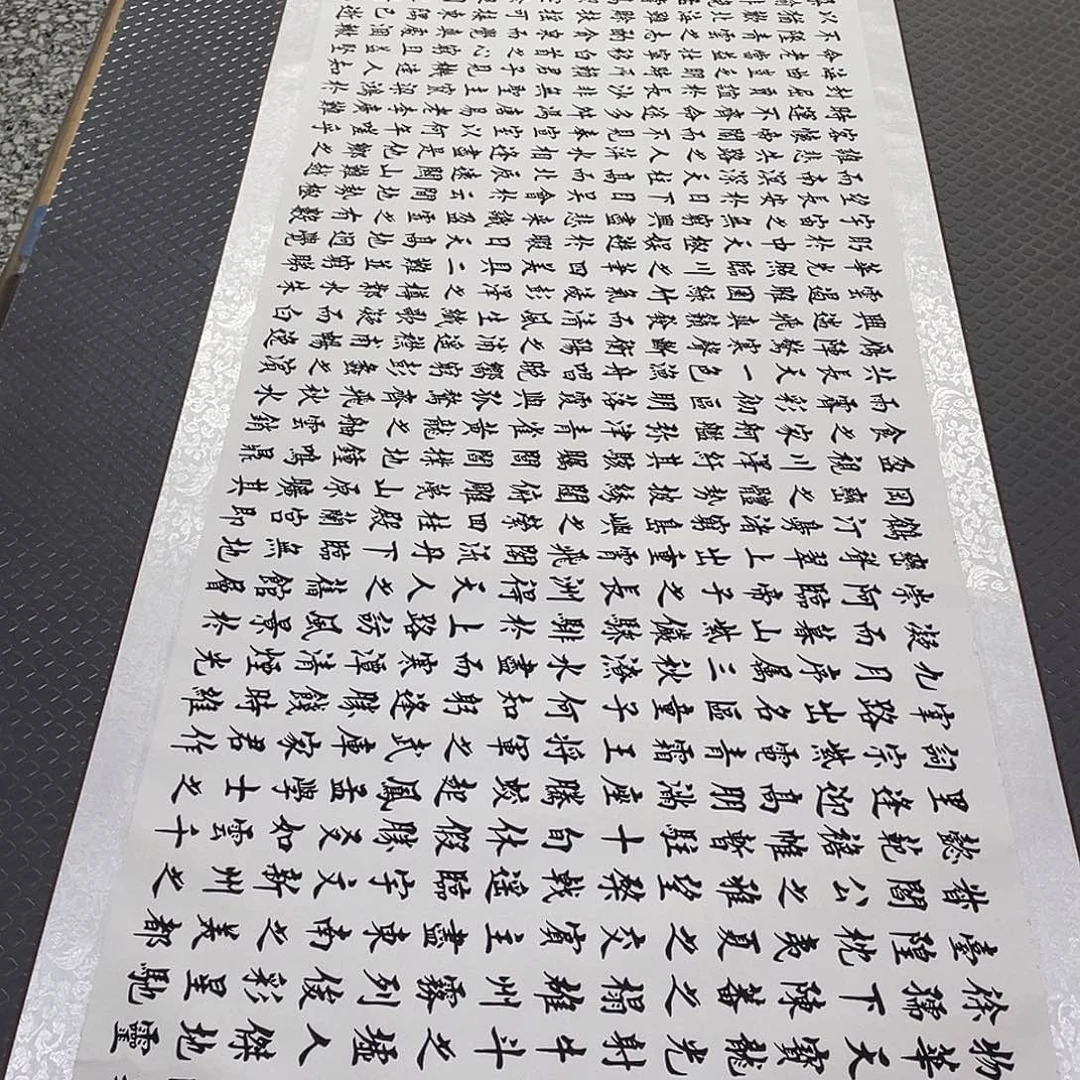 物華天寶龍光射牛斗之墟人傑地靈
徐孺下陳蕃之榻雄州霧列俊彩星馳
臺隍枕夷夏之交賓主盡東南之美都
督閻公之雅望棨戟遙臨宇文新州之
懿範襜帷暫駐十旬休假勝友如雲千
里逢迎高朋滿座騰蛟起鳳孟學士之
詞宗紫電青霜王將軍之武庫家君作
宰路出名區童子何知躬逢勝餞時維
九月序屬三秋潦水盡而寒潭清煙光
凝而暮山紫儼驂騑於上路訪風景於
崇阿臨帝子之長洲得天人之舊館層
巒聳翠上出重霄飛閣流丹下臨無地
鶴汀鳧渚窮島嶼之縈迴桂殿蘭宮即
岡巒之體勢披繡闥俯雕甍山原曠其
盈視川澤紆其駭矚閭閻撲地鐘鳴鼎
食之家舸艦彌津青雀黃龍之舳雲銷
雨霽彩徹區明落霞與孤鶩齊飛秋水
共長天一色漁舟唱晚響窮彭蠡之濱
雁陣驚寒聲斷衡陽之浦遙襟甫暢逸
興遄飛爽籟發而清風生纖歌凝而白
雲遏睢園綠竹氣凌彭澤之樽鄴水朱
華光照臨川之筆四美具二難並窮睇
眄於中天極娛遊於暇日天高地迥覺
宇宙之無窮興盡悲來識盈虛之有數
望長安於日下目吳會於雲間地勢極
而南溟深天柱高而北辰遠關山難越
誰悲失路之人萍水相逢盡是他鄉之
客懷帝閽而不見奉宣室以何年嗟乎
時運不齊命途多舛馮唐易老李廣難
封屈賈誼於長沙非無聖主竄梁鴻於
海曲豈乏明時所賴君子見機達人知
命老當益壯寧移白首之心窮且益堅